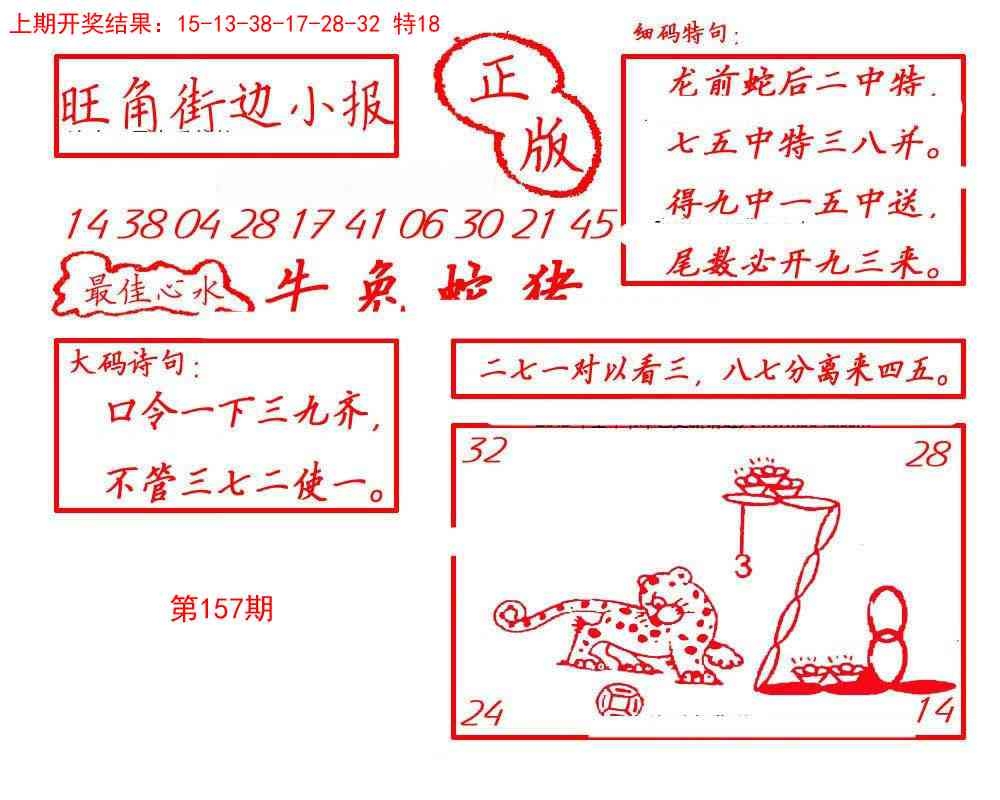 上期开奖结果：15-13-38-17-28-32 特18
旺角街边小报
正版
细码特句：
龙前蛇后二中特，
七五中特三八并。
得九中一五中送，
尾数必开九三来。
14 38 04 28 17 41 06 30 21 45
最佳心水
牛 兔 蛇 猪
大码诗句：
口令一下三九齐，
不管三七二使一。
二七一对以看三，八七分离来四五。
32
28
3
24
14
第157期